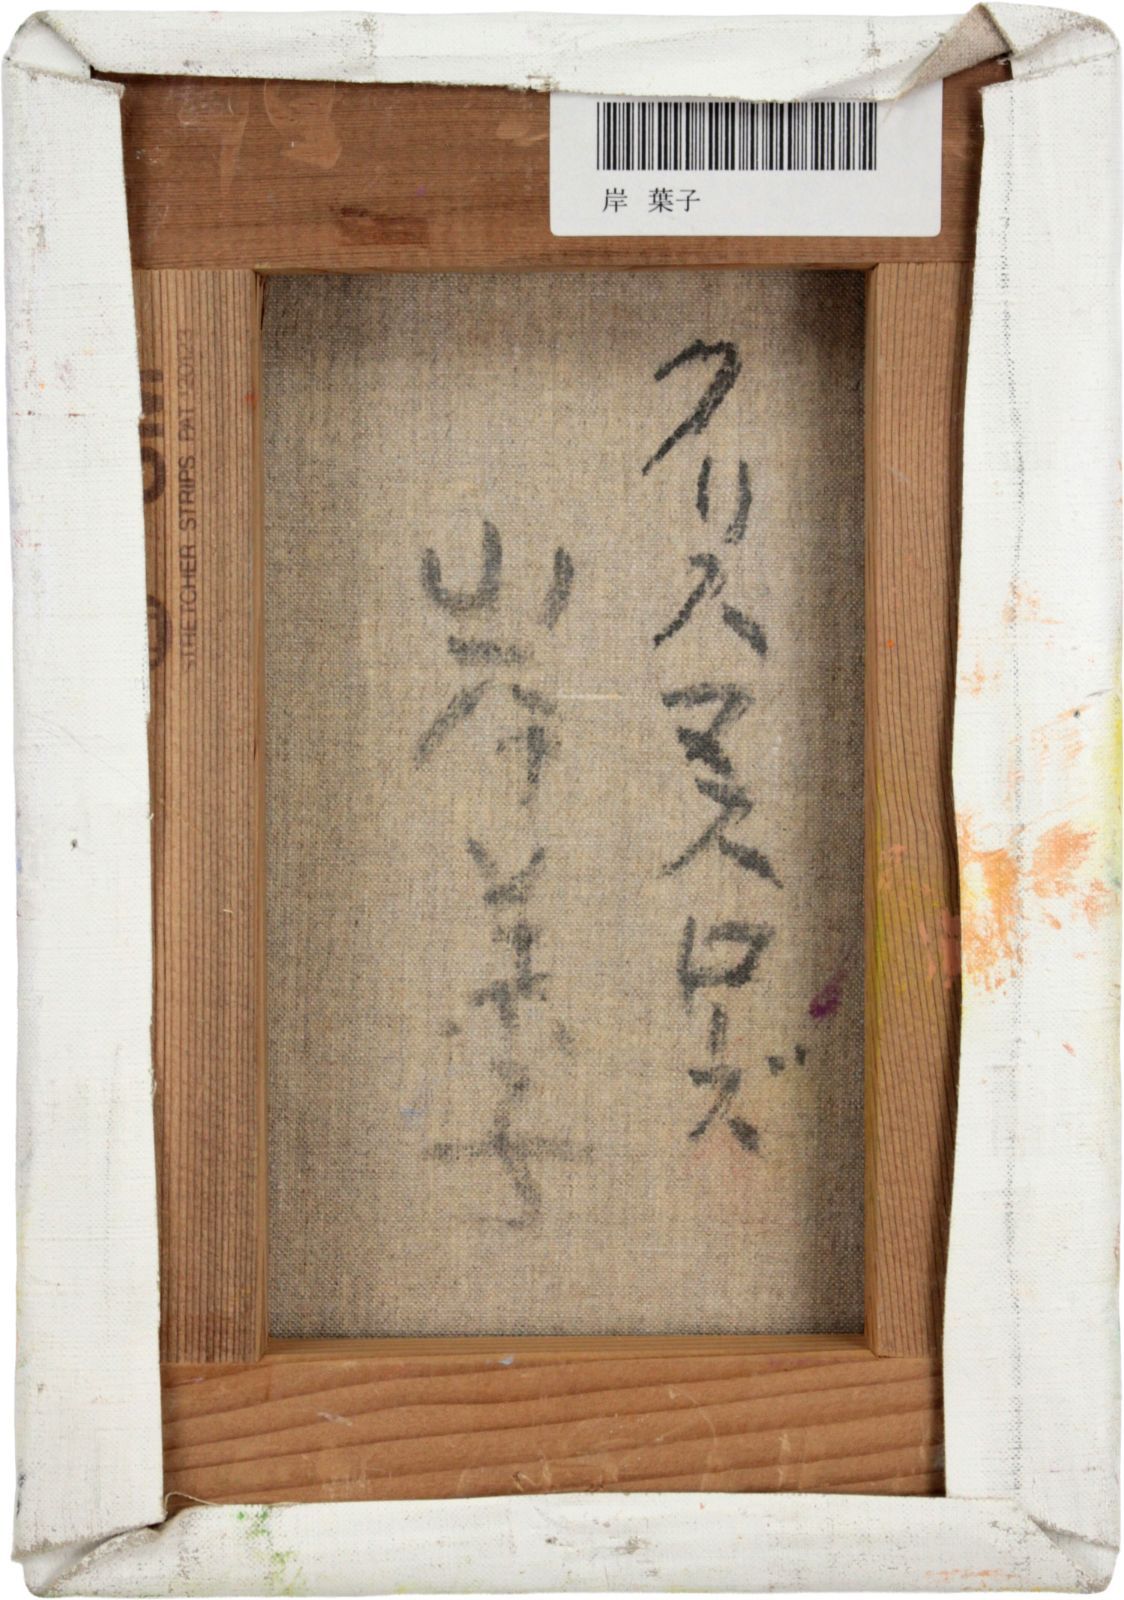 岸 葉子
クリスマスローズ
岸葉子
STRETCHER STRIPS PAT.